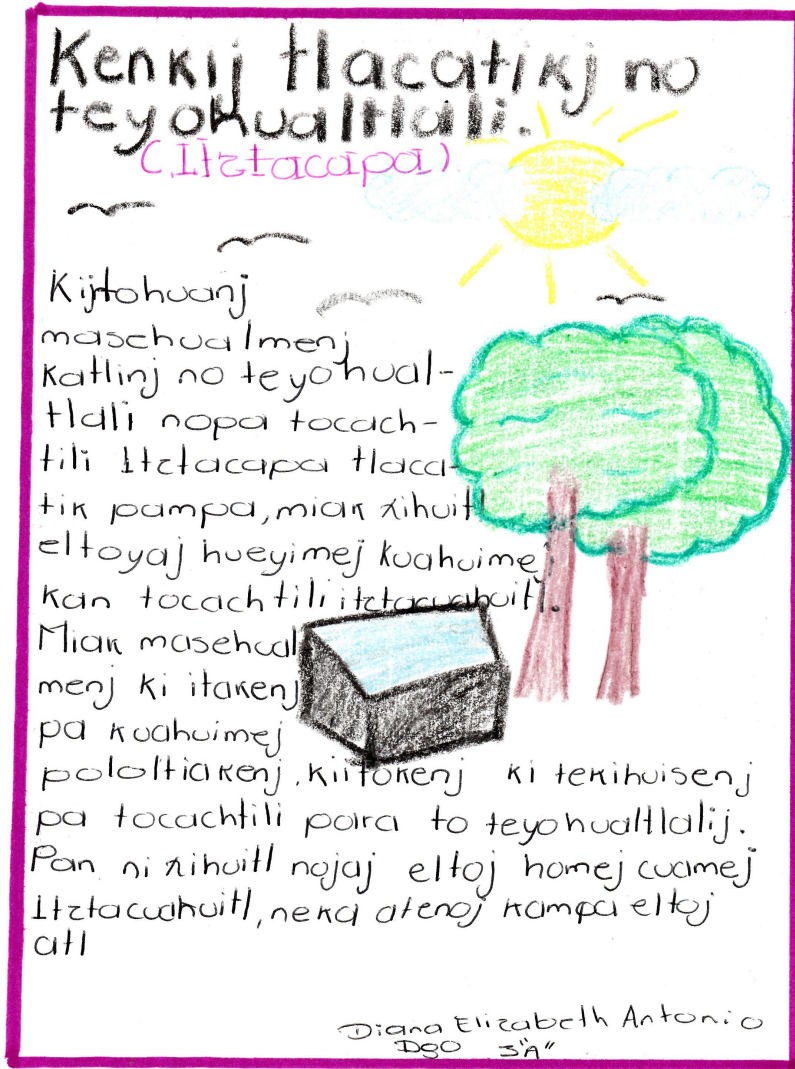 Kenkij tlacatikj no
teyohualtlali.
(Itztacapa)
Kijtohuanj
masehualmenj
katlinj no teyohual-
tlali nopa tocach-
tili Itztacapa tlaca-
tik pampa, miak xihuitl
eltoyaj hueyimej kuahuimej
kan tocachtili itztacuahuitl.
Miak masehual
menj ki itakenj
pa kuahuimej
pololtiakenj, kiitokenj ki tekihuisenj
pa tocachtili para to teyohualtlalij.
Pan ni xihuitl nojaj eltoj homej cuamej
Itztacuahuitl, neka atenoj kampa eltoj
atl
Diana Elizabeth Antonio
Dgo 3"A"